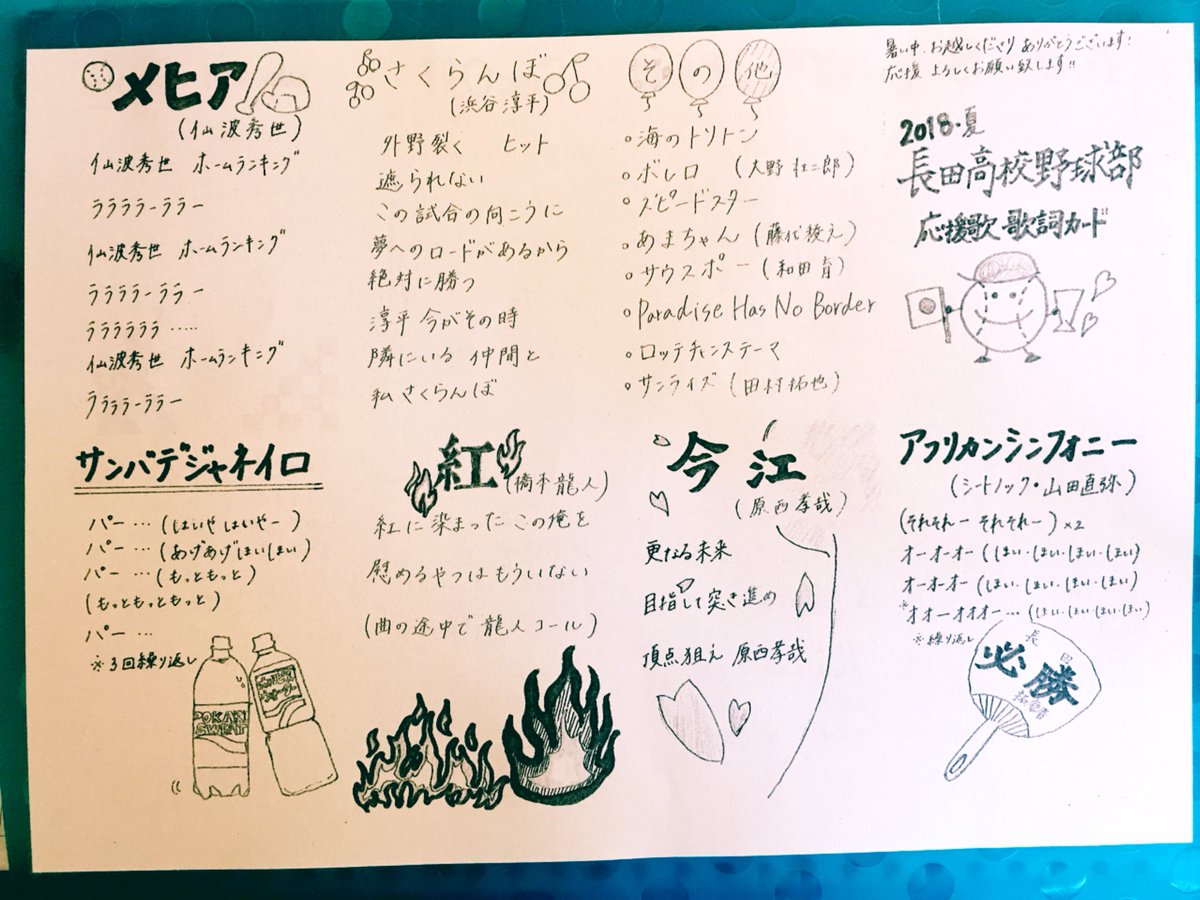 メヒア
(仙波秀世)
仙波秀世 ホームランキング
ララララーララー
仙波秀世 ホームランキング
ララララーララー
ララララララ .....
仙波秀世 ホームランキング
ララララーララー
さくらんぼ
(浜谷淳平)
外野裂く ヒット
遮られない
この試合の向こうに
夢へのロードがあるから
絶対に勝つ
淳平 今がその時
隣にいる 仲間と
私 さくらんぼ
その他
○海のトリトン
○ボレロ (大野壮二郎)
○スピードスター
○あまちゃん (藤代稜え)
○サウスポー (和田育)
○Paradise Has No Border
○ロッテチャンステーマ
○サンライズ (田村拓也)
暑い中、お越しくださり ありがとうございます!
応援 よろしくお願い致します!!
2018・夏
長田高校野球部
応援歌 歌詞カード
サンバデジャネイロ
パー … (はいや はいやー)
パー … (あげあげほいほい)
パー … (もっともっと)
(もっともっともっと)
パー …
※3回繰り返し
POKARI
SWEAT
紅
(橋本龍人)
紅に染まった この俺を
慰めるやつは もういない
(曲の途中で 龍人コール)
今江
(原西孝哉)
更なる未来
目指して 突き進め
頂点狙え 原西孝哉
アフリカンシンフォニー
(シートノック・山田直弥)
(それそれー それそれー) ×2
オーオーオー (ほい・ほい・ほい・ほい)
オーオーオー (ほい・ほい・ほい・ほい)
※オオーオオオー … (ほい・ほい・ほい・ほい)
※繰り返し
長田
必勝